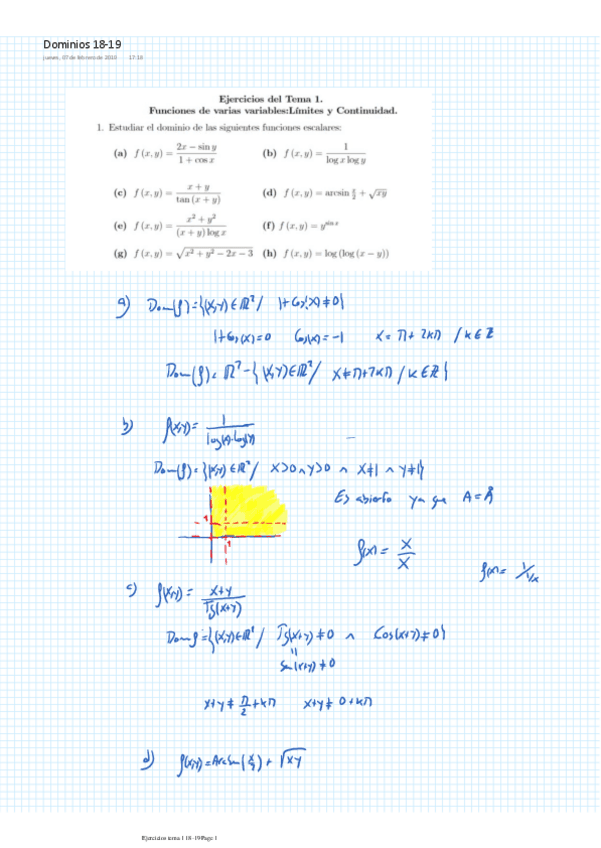 Dominios 18-19
jueves, 07 de febrero de 2019 17:18
Ejercicios del Tema 1.
Funciones de varias variables:Límites y Continuidad.
1. Estudiar el dominio de las siguientes funciones escalares:
(a) f (x, y) = (2x − sin y)/(1 + cos x) (b) f (x, y) = 1/(log x log y)
(c) f (x, y) = (x + y)/(tan (x + y)) (d) f (x, y) = arcsin x/2 + √xy
(e) f (x, y) = (x² + y²)/((x + y) log x) (f) f (x, y) = y^(sin x)
(g) f (x, y) = √(x² + y² − 2x − 3) (h) f (x, y) = log (log (x − y))
a) Dom(f) = {(x,y) ∈ ℝ² / 1+Cos(x) ≠ 0}
1+Cos(x) = 0 Cos(x) = -1 x = π + 2kπ / k ∈ ℤ
Dom(f) = ℝ² - {(x,y) ∈ ℝ² / x ≠ π + 2kπ / k ∈ ℤ}
b) f(x,y) = 1/(log(x)·log(y))
Dom(f) = {(x,y) ∈ ℝ² / x>0 ∧ y>0 ∧ x≠1 ∧ y≠1}
Es abierto ya que A = Å
1
1
f(x) = x/x
f(x) = 1/1/x
c) f(x,y) = (x+y)/(Tg(x+y))
Dom f = {(x,y) ∈ ℝ² / Tg(x+y) ≠ 0 ∧ Cos(x+y) ≠ 0}
Sen(x+y) ≠ 0
x+y ≠ π/2 + kπ x+y ≠ 0 + kπ
d) f(x,y) = ArcSen(x/2) + √xy
Ejercicios tema 1 18-19 Page 1